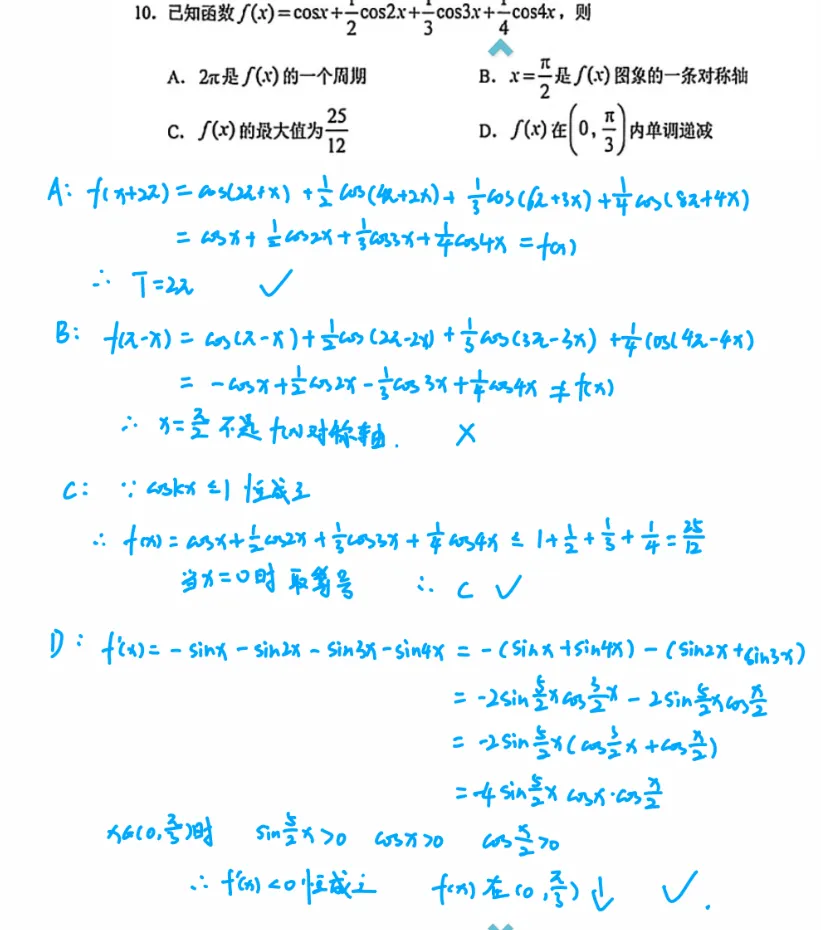 10. 已知函数 f(x)=cosx+1/2cos2x+1/3cos3x+1/4cos4x，则
A. 2π是f(x)的一个周期 B. x=π/2是f(x)图象的一条对称轴
C. f(x)的最大值为25/12 D. f(x)在(0, π/3)内单调递减
A: f(x+2π) = cos(2π+x) + 1/2cos(4π+2x) + 1/3cos(6π+3x) + 1/4cos(8π+4x)
= cosx + 1/2cos2x + 1/3cos3x + 1/4cos4x = f(x)
∴ T=2π ✓
B: f(π-x) = cos(π-x) + 1/2cos(2π-2x) + 1/3cos(3π-3x) + 1/4cos(4π-4x)
= -cosx + 1/2cos2x - 1/3cos3x + 1/4cos4x ≠ f(x)
∴ x=π/2 不是 f(x)对称轴. ×
C: ∵ coskx ≤1 恒成立
∴ f(x) = cosx + 1/2cos2x + 1/3cos3x + 1/4cos4x ≤ 1+1/2+1/3+1/4=25/12
当x=0时 取等号 ∴ C ✓
D: f'(x) = -sinx - sin2x - sin3x - sin4x = -(sinx+sin4x) - (sin2x+sin3x)
= -2sin5/2x cos3/2x - 2sin5/2x cosx/2
= -2sin5/2x(cos3/2x + cosx/2)
= -4sin5/2x cosx·cosx/2
x∈(0,π/3)时 sin5/2x>0 cosx>0 cosx/2>0
∴ f'(x)<0 恒成立 f(x) 在(0,π/3)↓ ✓.